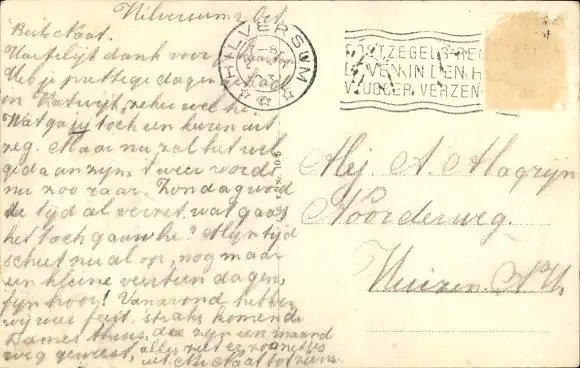 Hilversum 2 Oct.
Beste Naat.
Hartelijk dank voor Kaart
Heb je prettige dagen
in Katwijk, zeker wel he.
Wat ga jij toch een keren uit
zeg. Maar nu zal het wel
gedaan zijn, 't weer wordt
nu zoo raar. Zondag word
de tijd al verzet, wat gaat
het toch gauw he? Mijn tijd
schiet nu al op, nog maar
een kleine veertien dagen,
fijn hoor! Vanavond hebben
wij weer feest, straks komen de
Dames thuis, die zijn een maand
weg geweest, alles ziet er zoo netjes
uit. Nu Naat tot ziens.
HILVERSUM
POSTZEGELS RE
VAN DEN H
VLUGGER VERZEN
Mej. A. Magrijn
Noorderweg.
Huizen. N.H.